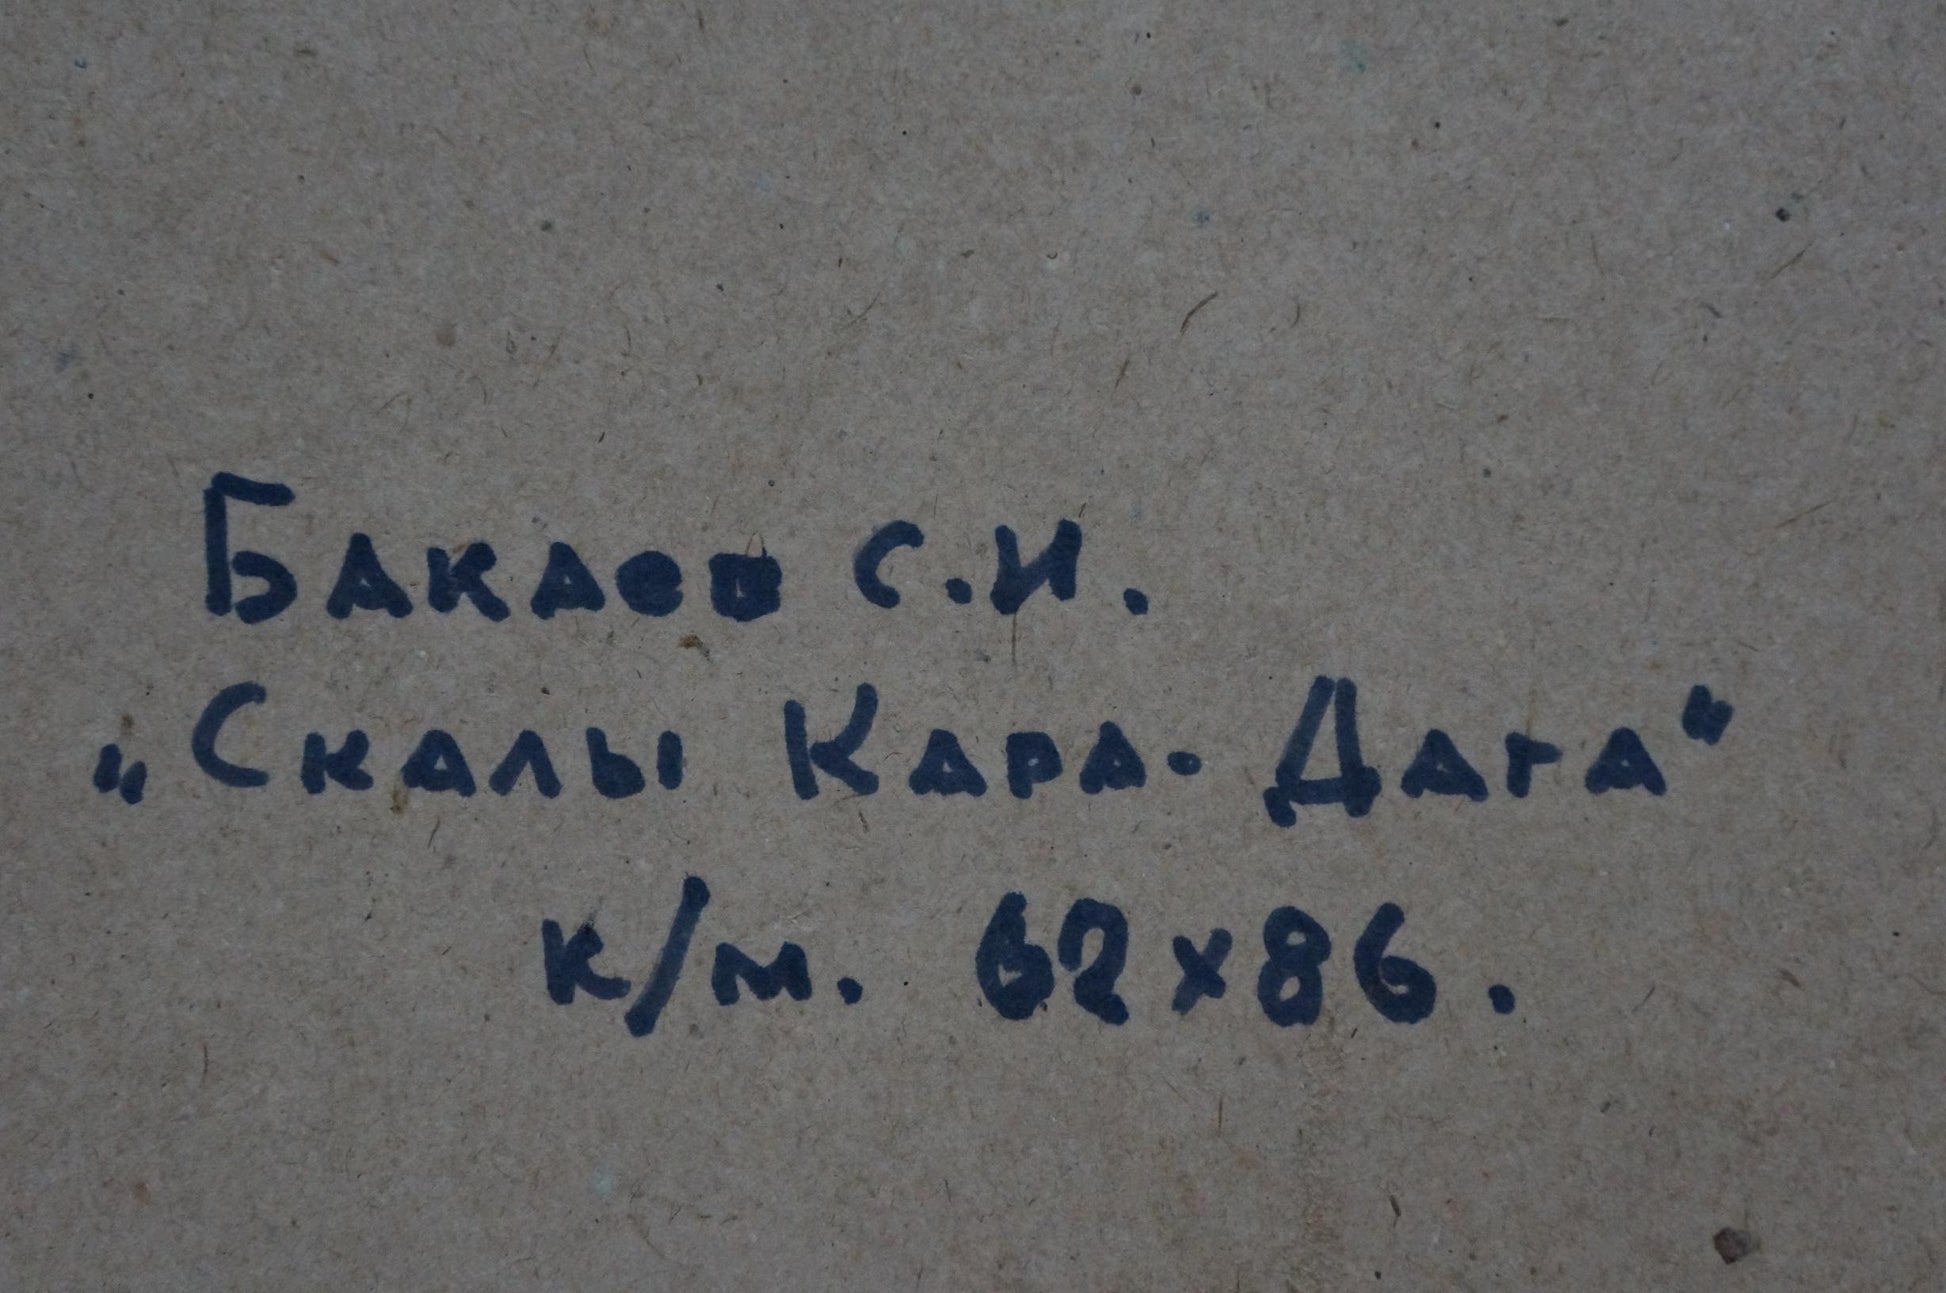 Бакаев С.И.
„Скалы Кара-Дага“
к/м. 62х86.